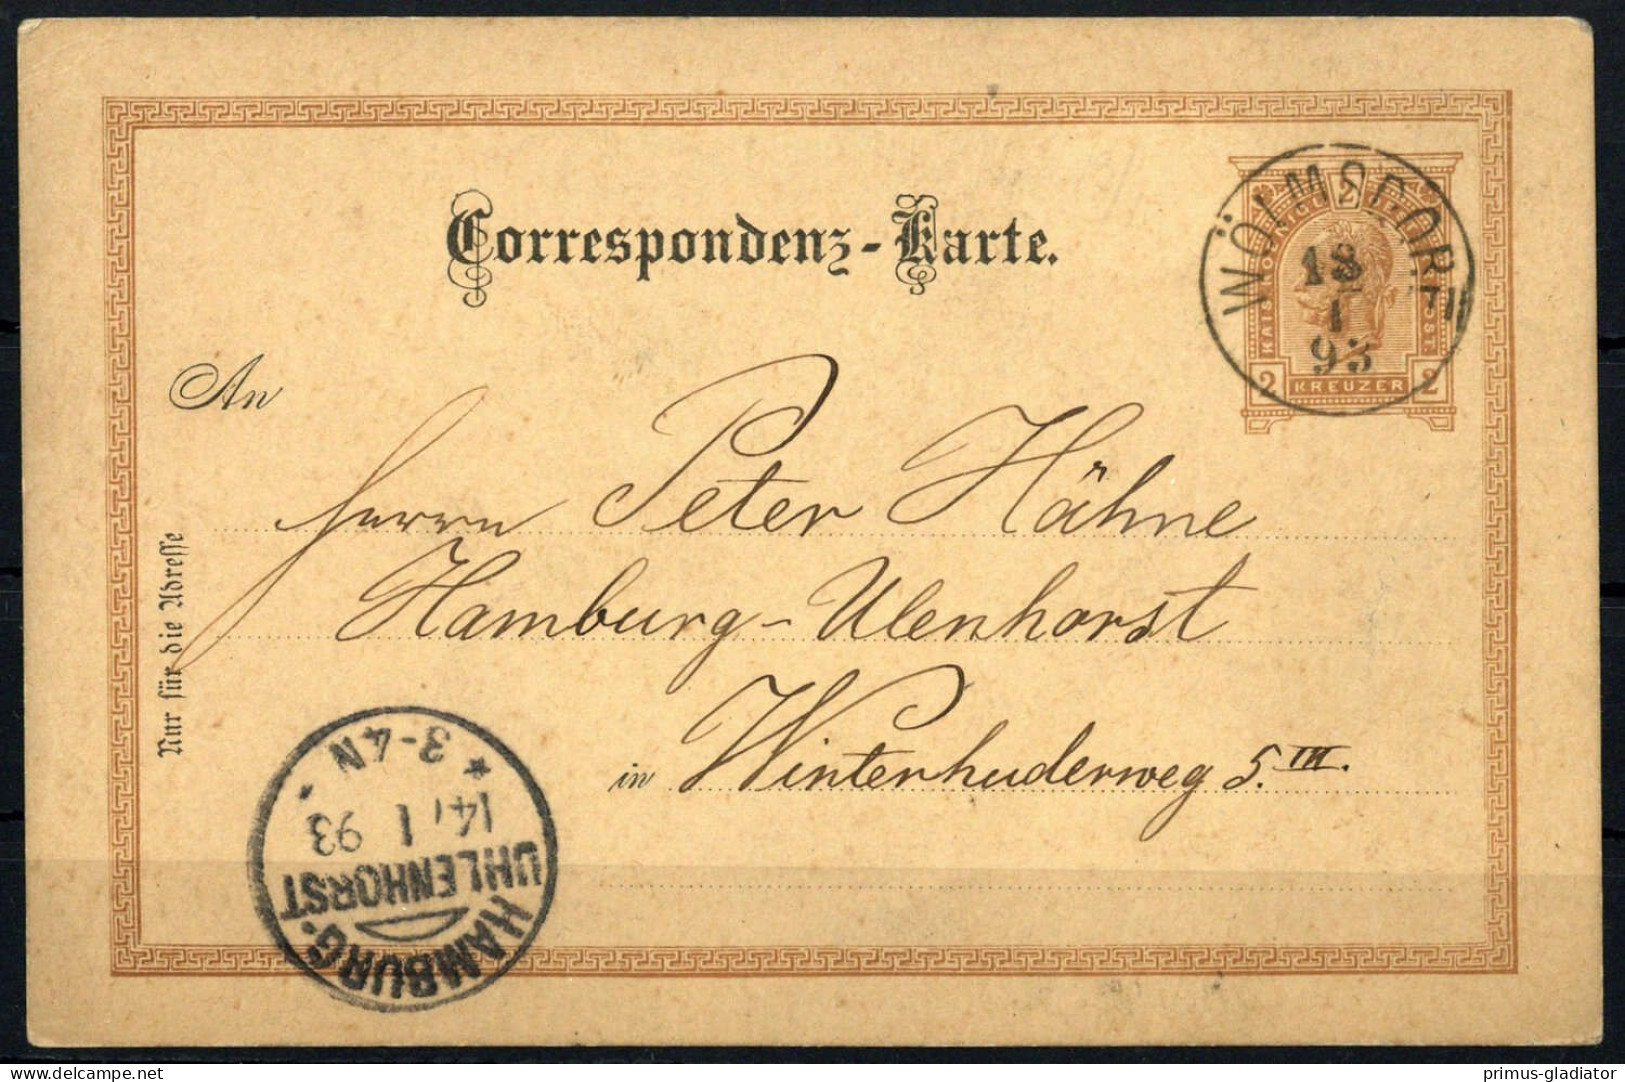 Correspondenz-Karte.
WÖLMSDORF
13
1
93
2 KREUZER 2
An
Herrn Peter Hähne
Hamburg-Ulenhorst
in Winterhuderweg 5. III.
Nur für die Adresse
HAMBURG.
UHLENHORST
14/1 93
* 3-4N *
primus-gladiator
delcampe.net